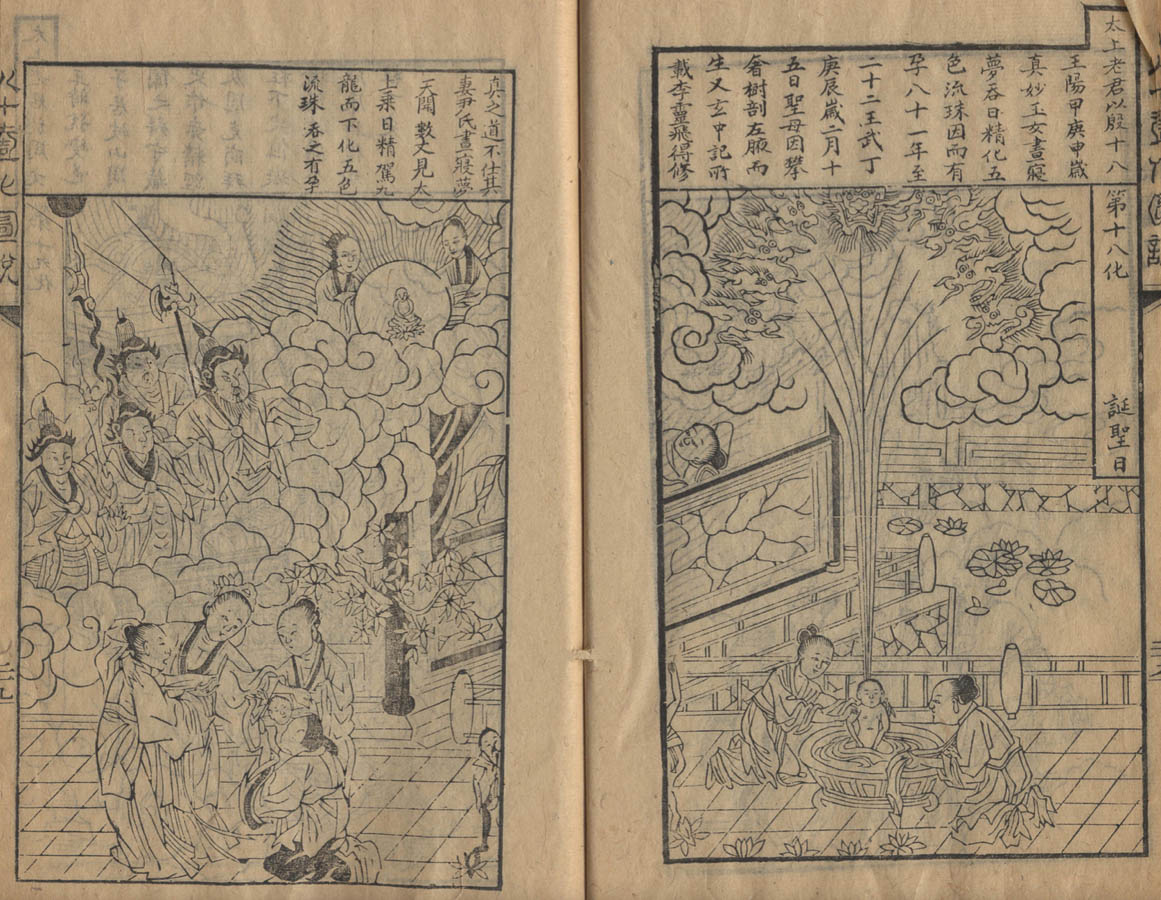 太上老君以殷十八
王陽甲庚申歲
真妙玉女晝寢
夢吞日精化五
色流珠因而有
孕八十一年至
二十二王武丁
庚辰歲二月十
五日聖母因攀
李樹剖左腋而
生又玄中記所
載李靈飛得修
第十八化
誕聖日
真之道不仕其
妻尹氏晝寢夢
天開數丈見太
上乘日精駕九
龍而下化五色
流珠吞之有孕
八十一化圖說